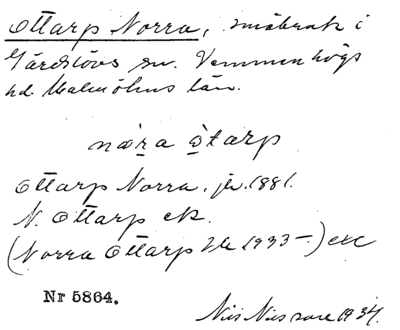 Ottarp Norra, småbruk i
Gärdslövs sn. Vemmenhögs
hd. Malmöhus län.
nǫra ọ̀tarp
Ottarp Norra, jr. 1881.
N. Ottarp ek.
(Norra Ottarp 1933 –) ek
Nr 5864.
Nils Nilsson 1934.